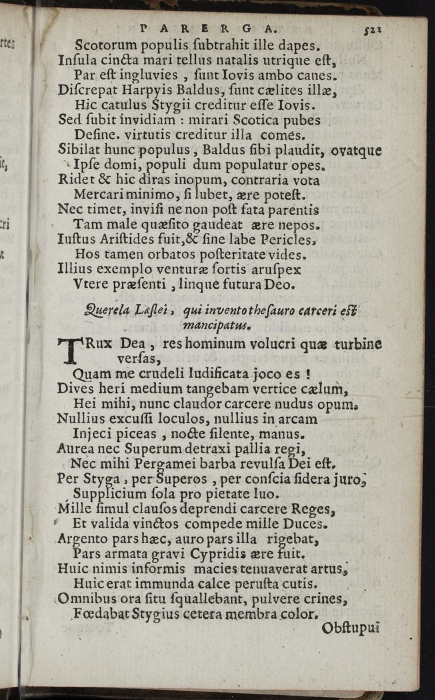 PARERGA. 521
Scotorum populis ſubtrahit ille dapes.
Inſula cincta mari tellus natalis utrique eſt,
Par eſt ingluvies , ſunt Iovis ambo canes.
Diſcrepat Harpyis Baldus, ſunt cælites illæ,
Hic catulus Stygii creditur eſſe Iovis.
Sed ſubit invidiam : mirari Scotica pubes
Deſine. virtutis creditur illa comes.
Sibilat hunc populus , Baldus ſibi plaudit, ovatque
Ipſe domi, populi dum populatur opes.
Ridet & hic diras inopum, contraria vota
Mercari minimo, ſi lubet, ære poteſt.
Nec timet, inviſi ne non poſt fata parentis
Tam male quæſito gaudeat ære nepos.
Iuſtus Ariſtides fuit, & ſine labe Pericles,
Hos tamen orbatos poſteritate vides.
Illius exemplo venturæ ſortis aruſpex
Vtere præſenti , linque futura Deo.
Querela Laſlei , qui invento theſauro carceri eſt
mancipatus.
TRux Dea , res hominum volucri quæ turbine
verſas,
Quam me crudeli ludificata joco es !
Dives heri medium tangebam vertice cælum,
Hei mihi, nunc claudor carcere nudus opum.
Nullius excuſſi loculos, nullius in arcam
Injeci piceas , nocte ſilente, manus.
Aurea nec Superum detraxi pallia regi,
Nec mihi Pergamei barba revulſa Dei eſt.
Per Styga , per Superos , per conſcia ſidera juro,
Supplicium ſola pro pietate luo.
Mille ſimul clauſos deprendi carcere Reges,
Et valida vinctos compede mille Duces.
Argento pars hæc, auro pars illa rigebat,
Pars armata gravi Cypridis ære fuit.
Huic nimis informis macies tenuaverat artus,
Huic erat immunda calce peruſta cutis.
Omnibus ora ſitu ſquallebant, pulvere crines,
Fœdabat Stygius cetera membra color.
Obſtupui